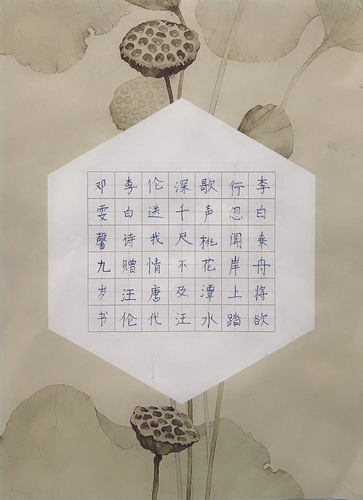 李白乘舟将欲
行忽闻岸上踏
歌声桃花潭水
深千尺不及汪
伦送我情唐代
李白诗赠汪伦
邓雯馨九岁书